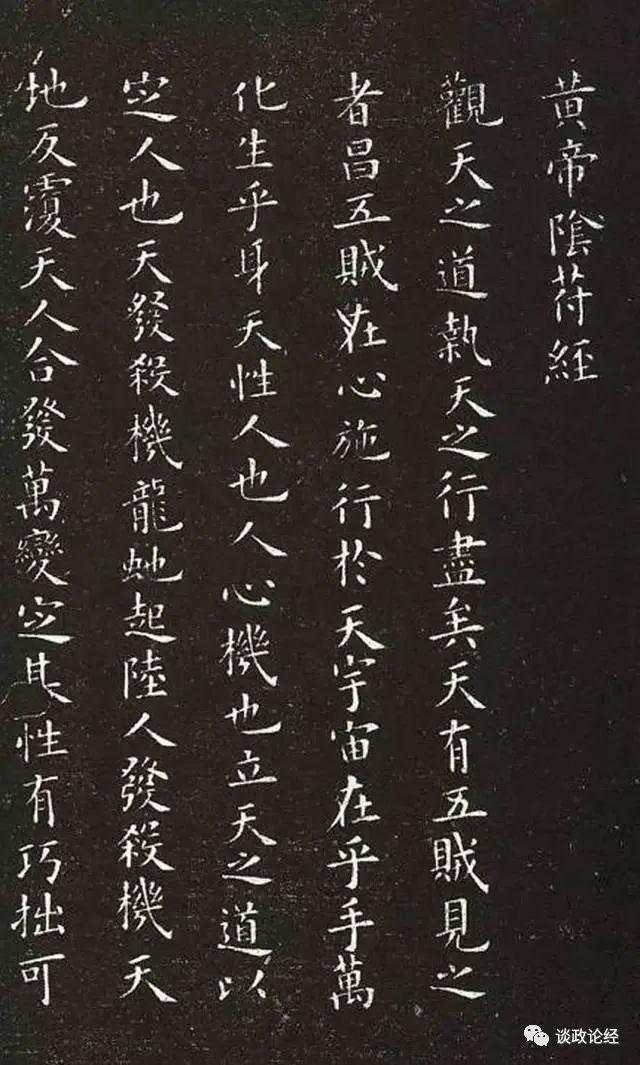 黄帝陰苻經
觀天之道執天之行盡矣天有五賊見之
者昌五賊在心施行於天宇宙在乎手萬
化生乎身天性人也人心機也立天之道以
定人也天發殺機龍虵起陸人發殺機天
地反覆天人合發萬變定基性有巧拙可
谈政论经